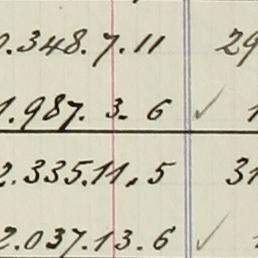 0.348.7.11 29
1.987.3.6 ✓ 1
2.335.11.5 31
2.037.13.6 ✓